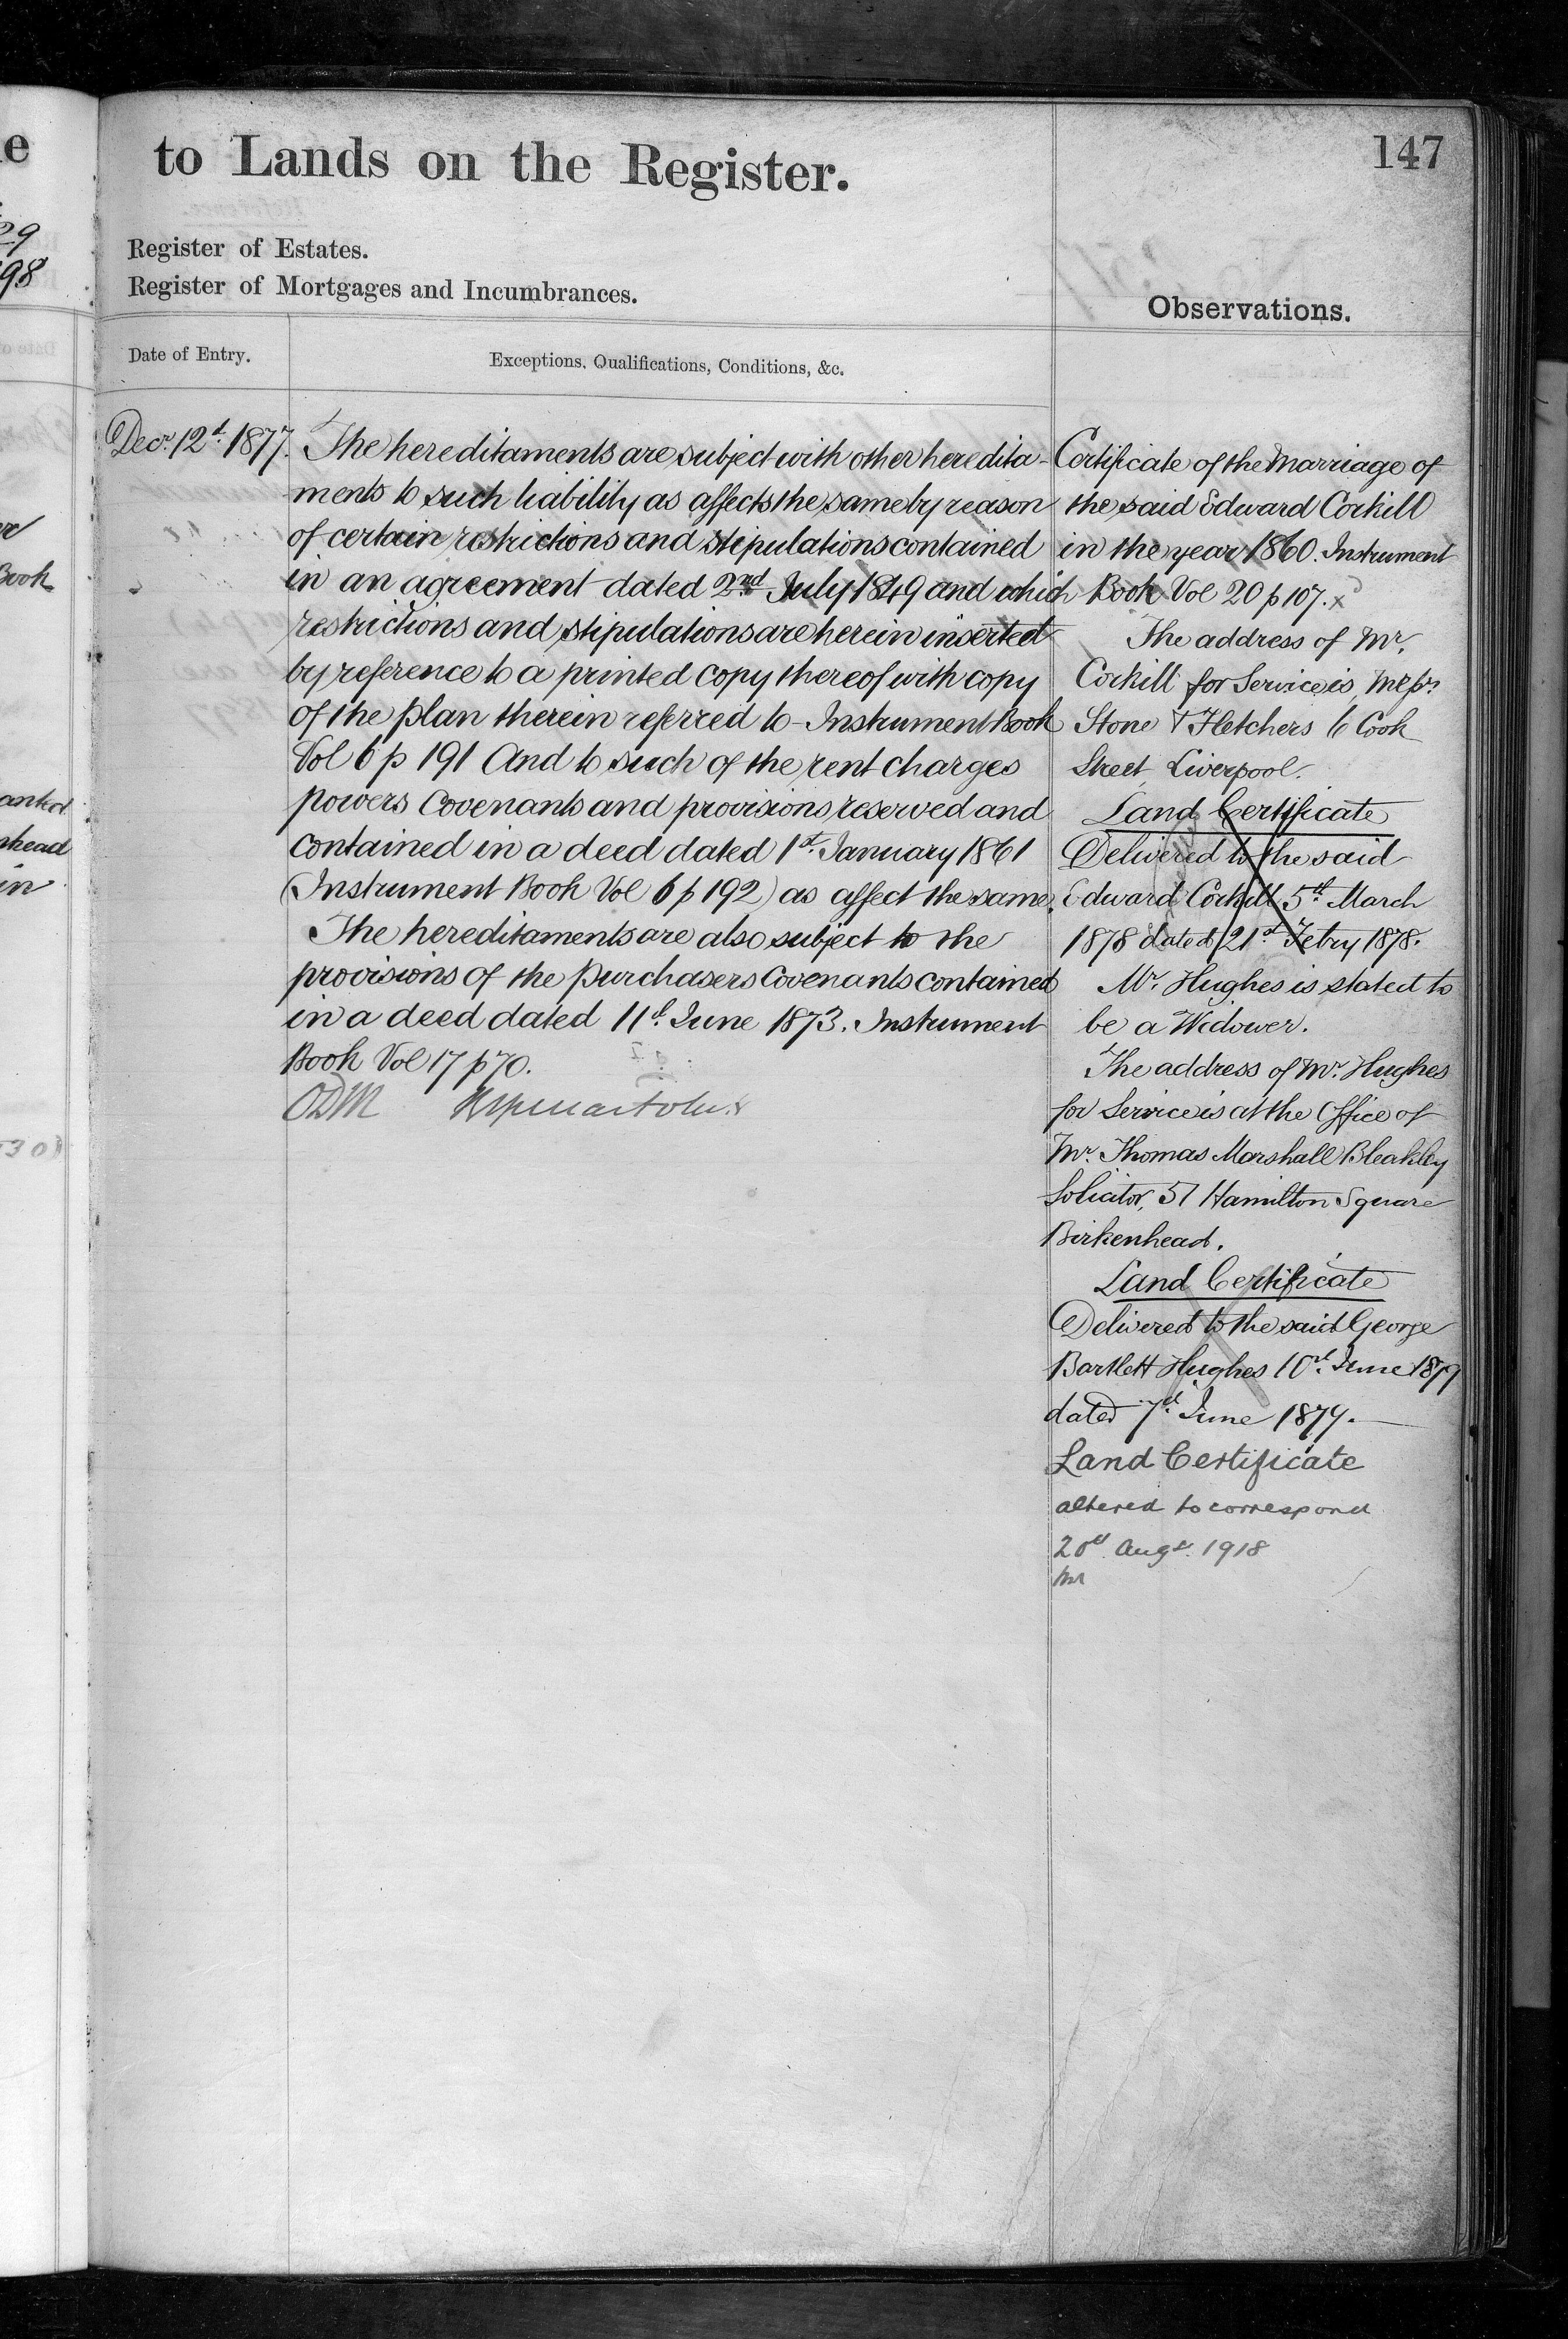 to Lands on the Register.
147
Register of Estates.
Register of Mortgages and Incumbrances.
Observations.
Date of Entry.
Exceptions, Qualifications, Conditions, &c.
Decr. 12th. 1877.
The hereditaments are subject with other heredita-
ments to such liability as affects the same by reason
of certain restrictions and stipulations contained
in an agreement dated 2nd July 1849 and which
restrictions and stipulations are herein inserted
by reference to a printed copy thereof with copy
of the plan therein referred to - Instrument Book
Vol 6 p 191 And to such of the rent charges
powers Covenants and provisions reserved and
contained in a deed dated 1st. January 1861
(Instrument Book Vol 6 p 192) as affect the same.
The hereditaments are also subject to the
provisions of the Purchasers Covenants contained
in a deed dated 11th. June 1873. Instrument
Book Vol 17 p 70.
ODM
Certificate of the Marriage of
the said Edward Corkill
in the year 1860. Instrument
Book Vol 20 p 107. x
The address of Mr.
Corkill for Service is Messrs.
Stone & Fletchers 6 Cook
Street Liverpool.
Land Certificate
Delivered to the said
Edward Corkill 5th. March
1878 dated 21st Febry 1878.
Mr. Hughes is stated to
be a Widower.
The address of Mr. Hughes
for Service is at the Office of
Mr. Thomas Marshall Bleakley
Solicitor, 51 Hamilton Square
Birkenhead.
Land Certificate
Delivered to the said George
Bartlett Hughes 10th. June 1879
dated 7th. June 1879.
Land Certificate
altered to correspond
20th Augt. 1918
e
29
98
Book
anted
nhead
in